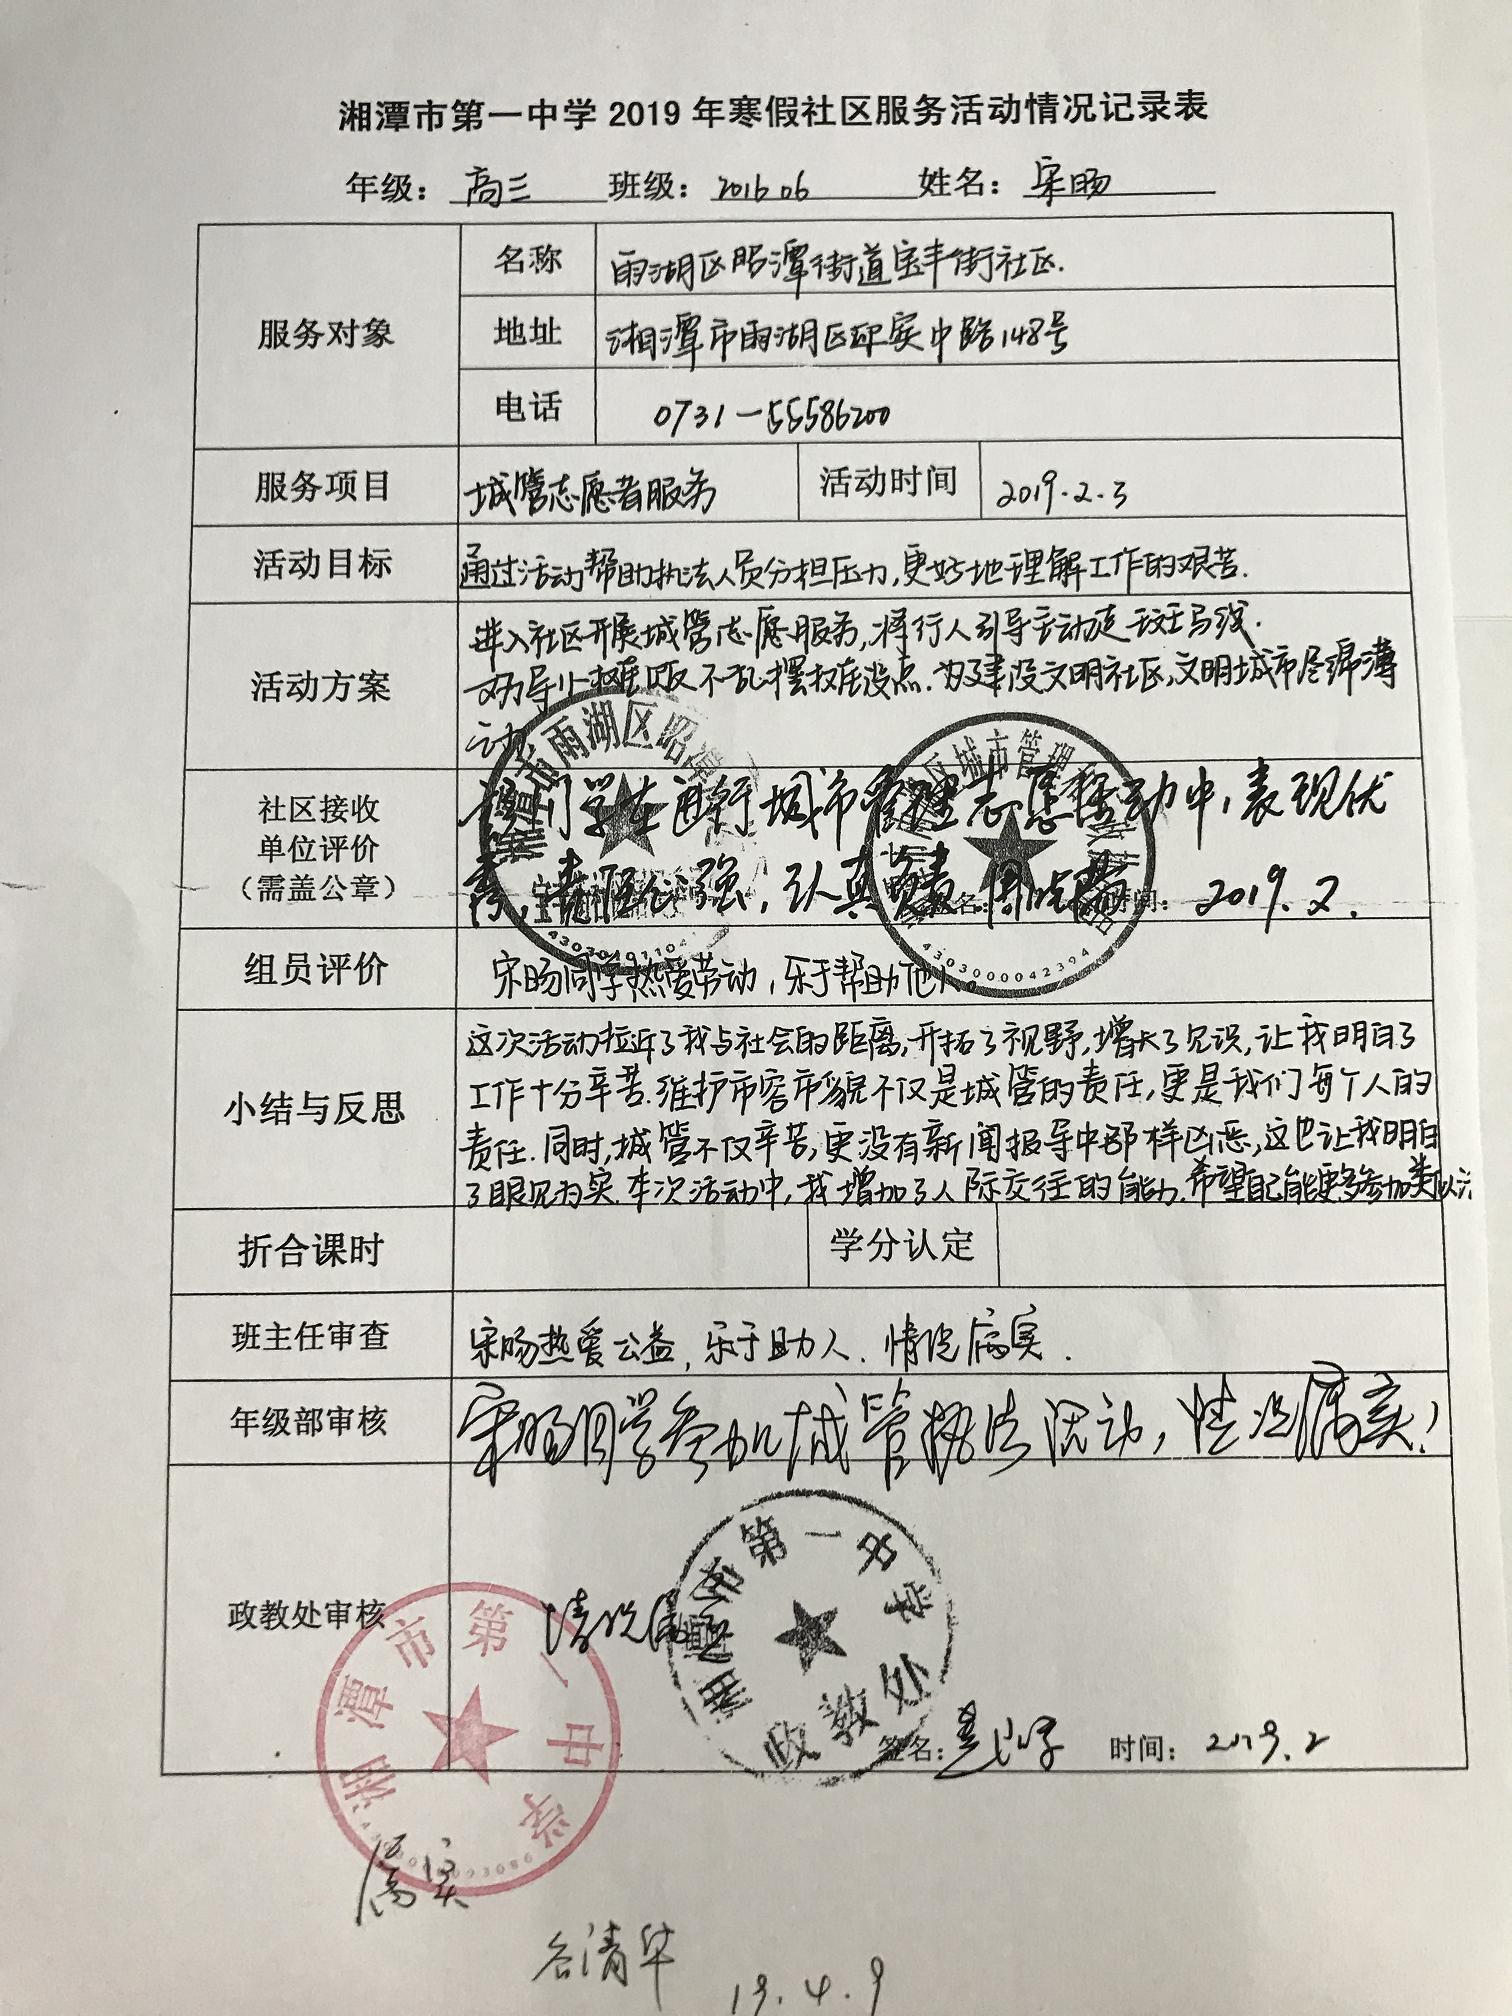 湘潭市第一中学 2019 年寒假社区服务活动情况记录表
年级：高三 班级：201606 姓名：宋旸
服务对象 名称 雨湖区昭潭街道宝丰街社区.
地址 湘潭市雨湖区迎宾中路148号
电话 0731-55586200
服务项目 城管志愿者服务 活动时间 2019.2.3
活动目标 通过活动帮助执法人员分担压力,更好地理解工作的艰苦.
活动方案 进入社区开展城管志愿服务,将行人引导主动走斑马线.
劝导小摊贩不乱摆摊设点.为建设文明社区,文明城市尽绵薄
之力
社区接收
单位评价
（需盖公章）
同学在进行城市管理志愿活动中,表现优
秀,责任心强,认真负责. 2019.2.
组员评价 宋旸同学热爱劳动,乐于帮助他人.
小结与反思 这次活动拉近了我与社会的距离,开拓了视野,增长了见识,让我明白了
工作十分辛苦.维护市容市貌不仅是城管的责任,更是我们每个人的
责任.同时,城管不仅辛苦,更没有新闻报导中那样凶恶,这也让我明白
了眼见为实.本次活动中,我增加了人际交往的能力.希望自己能更多参加类似
折合课时 学分认定
班主任审查 宋旸热爱公益,乐于助人.情况属实.
年级部审核 宋旸同学参加城管执法活动,情况属实!
政教处审核 情况属实
湘潭市第一中学
政教处
签名： 时间：2019.2
湘潭市第一中学
属实
谷清华
19.4.9